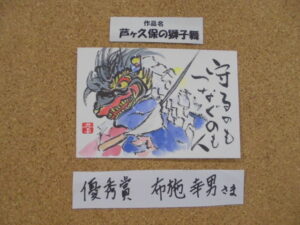 作品名
芦ヶ久保の獅子舞
守るのも
つなぐのも
人
優秀賞 布施 幸男さま